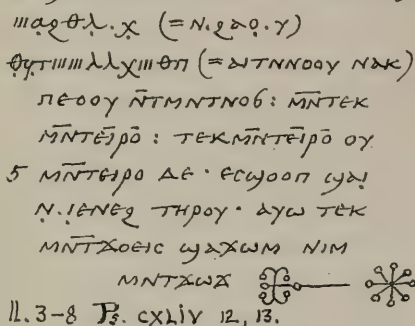 ///ⲁϥⲑⲗ.ⲭ (=ⲛ.ϩⲁϥ.ⲩ)
ⲑⲩⲧ///ⲗⲗⲭ///ⲑⲡ (=ⲁⲓⲧⲛⲛⲟⲟⲩ ⲛⲁⲕ)
ⲡⲉⲟⲟⲩ ⲛ̅ⲧⲙⲛⲧⲛⲟϭ: ⲙⲛ̅ⲧⲉⲕ
ⲙⲛ̅ⲧⲉⲓ̅ⲣⲟ̅ : ⲧⲉⲕⲙⲛ̅ⲧⲉⲓ̅ⲣⲟ̅ ⲟⲩ
5 ⲙⲛ̅ⲧⲉⲓⲣⲟ ⲇⲉ · ⲉⲥϣⲟⲟⲡ ϣⲁⲓ
ⲛ.ⲓⲉⲛⲉϩ ⲧⲏⲣⲟⲩ · ⲁⲩⲱ ⲧⲉⲕ
ⲙⲛ̅ⲧϫⲟⲉⲓⲥ ϣⲁϫⲱⲙ ⲛⲓⲙ
ⲙⲛⲧϫⲱϫ
ll. 3-8 Ps. cxliv 12, 13.